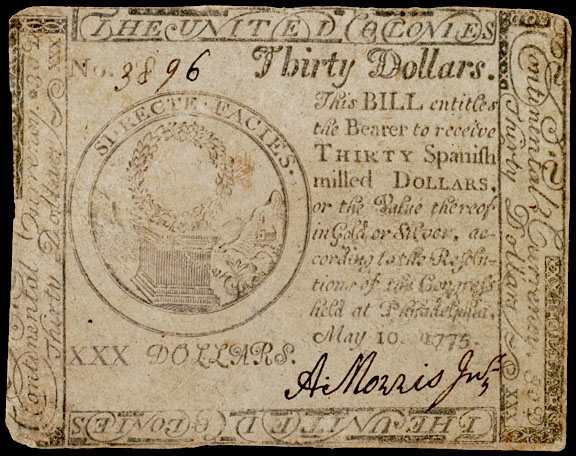 THE UNITED COLONIES
No. 3896 Thirty Dollars.
SI RECTE FACIES.
This BILL entitles
the Bearer to receive
THIRTY Spanish
milled DOLLARS,
or the Value thereof
in Gold or Silver, ac-
cording to the Resolu-
tions of the Congress
held at Philadelphia,
May 10. 1775.
XXX DOLLARS.
A: Morris Junr
Continental Currency
Thirty Dollars
XXX
Continental Currency
Thirty Dollars
XXX
THE UNITED COLONIES